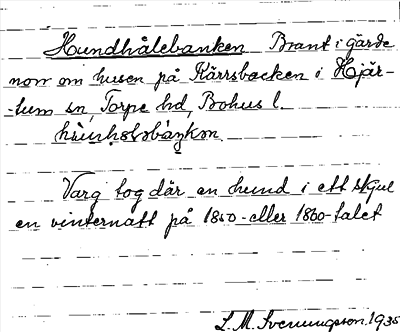 Hundhålebanken Brant i gärde
norr om husen på Kärrsbacken i Hjär-
-tum sn, Torpe hd, Bohus l.
Varg tog där en hund i ett skjul
en vinternatt på 1850-eller 1860-talet
L. M. Svenungsson. 1935